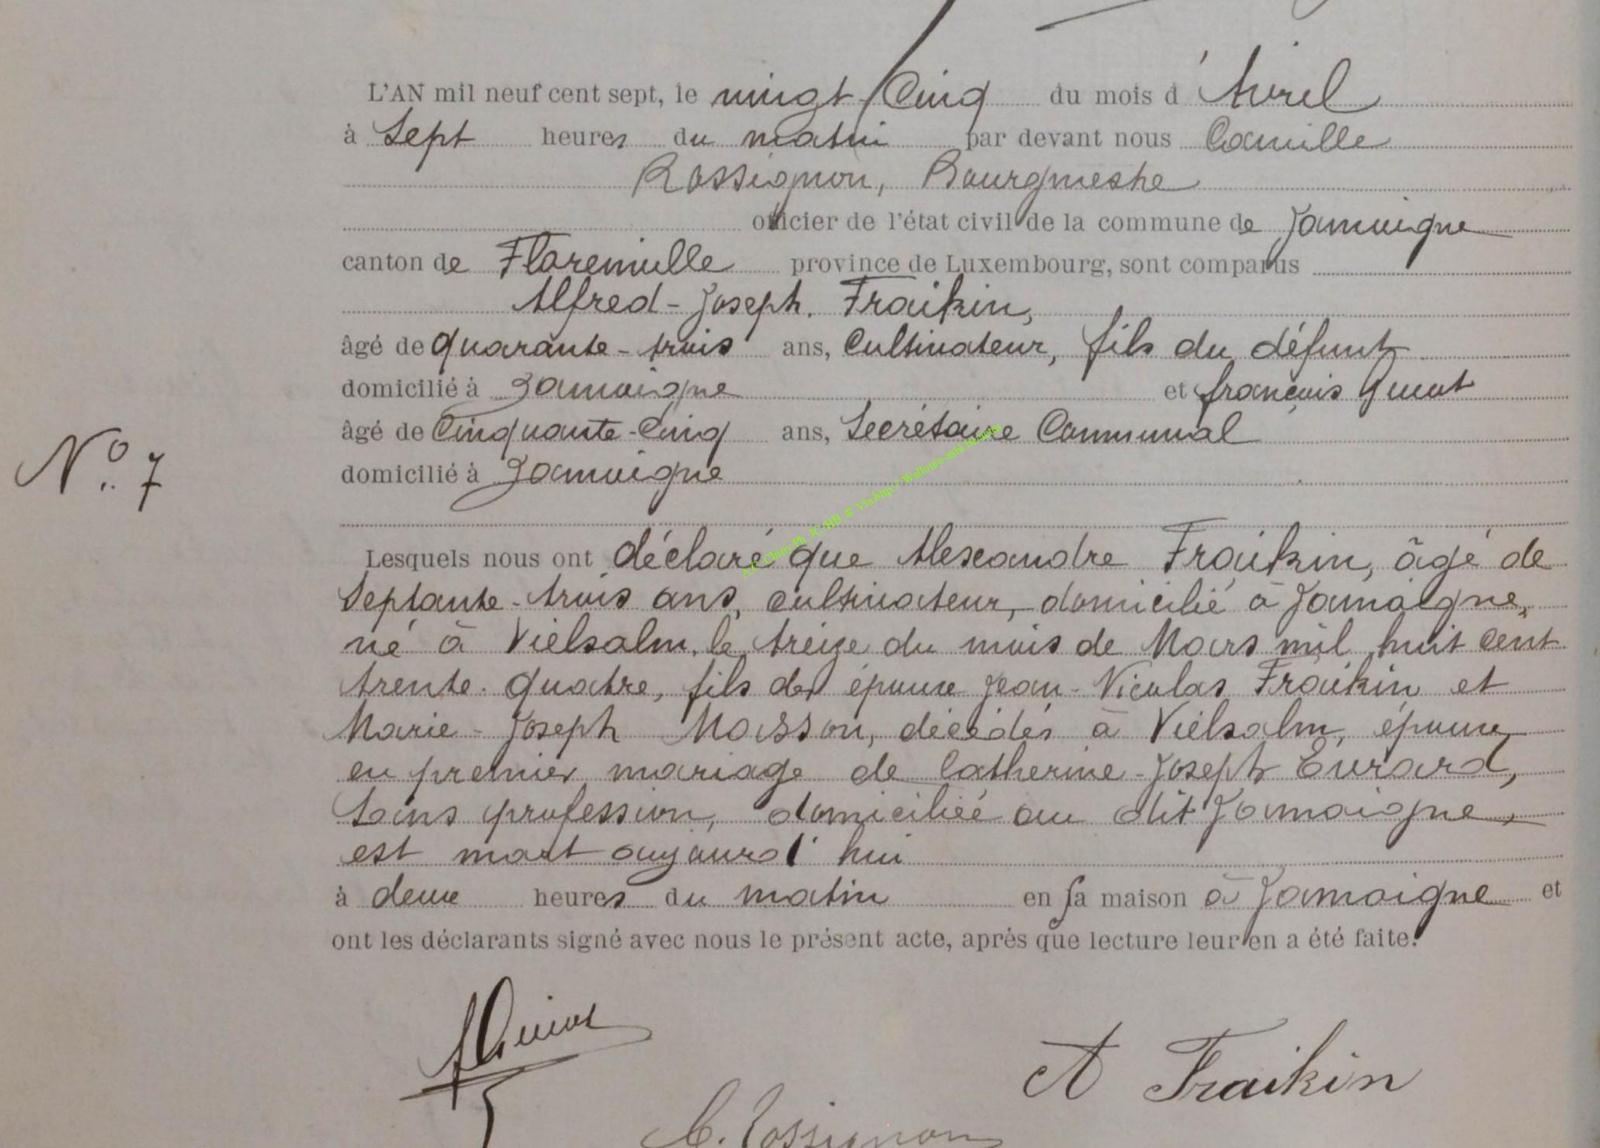 L'AN mil neuf cent sept, le vingt-Cinq du mois d'Avril
à Sept heures du matin par devant nous Camille
Rossignon, Bourgmestre
officier de l'état civil de la commune de Jamoigne
canton de Florenville province de Luxembourg, sont comparus
Alfred-Joseph Fraikin,
âgé de quarante-trois ans, Cultivateur, fils du défunt
domicilié à Jamoigne et françois Guiot
âgé de Cinquante-Cinq ans, Secrétaire Communal
N° 7
domicilié à Jamoigne
Lesquels nous ont déclaré que Alexandre Fraikin, âgé de
Septante-trois ans, cultivateur, domicilié à Jamoigne,
né à Vielsalm, le treize du mois de Mars mil huit cent
trente-quatre, fils des époux Jean-Nicolas Fraikin et
Marie-Joseph Masson, décédés à Vielsalm, époux
en premier mariage de Catherine-Joseph Evrard,
Sans profession, domiciliée au dit Jamoigne,
est mort aujourd'hui
à deux heures du matin en sa maison à Jamoigne et
ont les déclarants signé avec nous le présent acte, après que lecture leur en a été faite.
A Fraikin
C. Rossignon